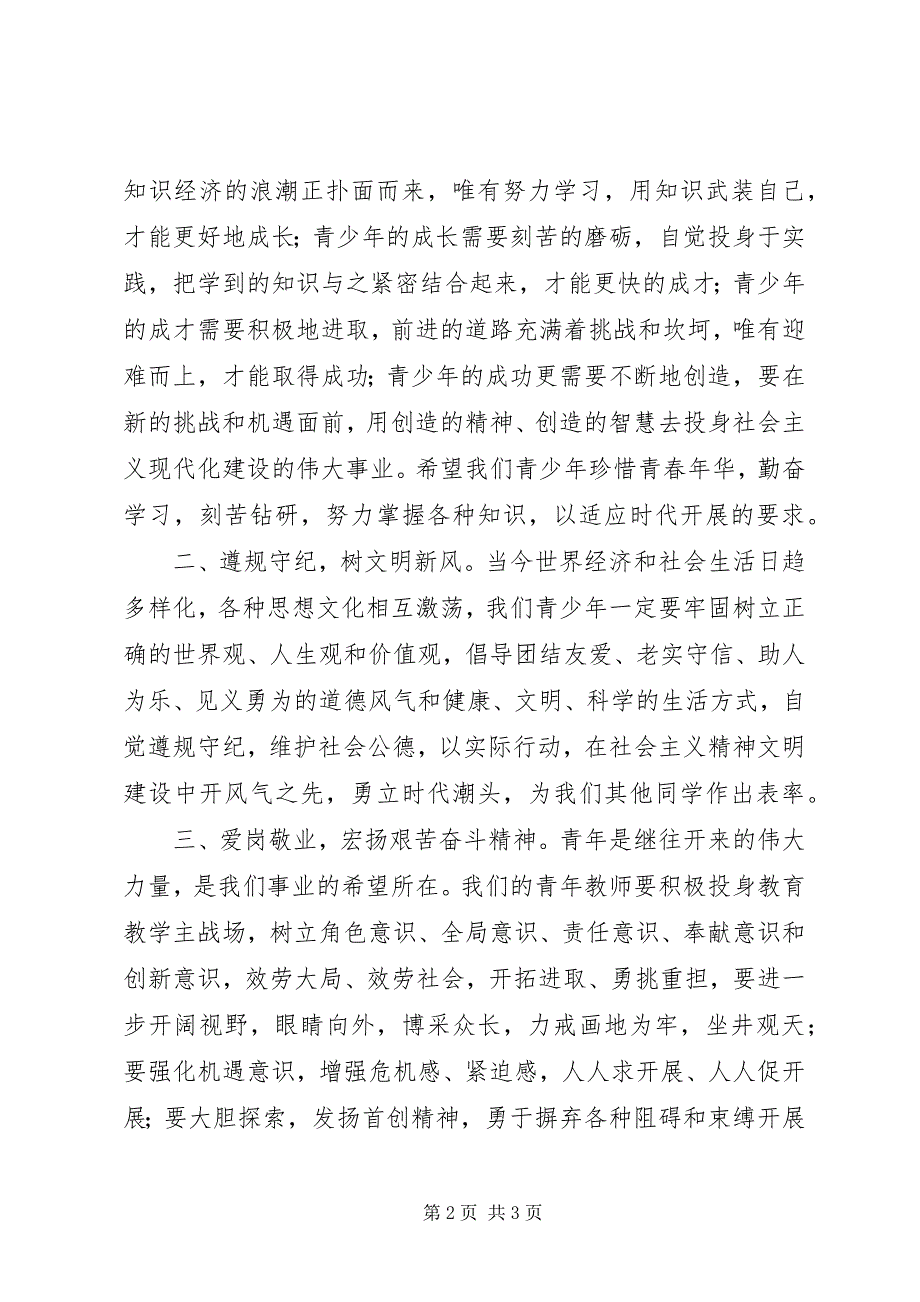 知识经济的浪潮正扑面而来，唯有努力学习，用知识武装自己，
才能更好地成长；青少年的成长需要刻苦的磨砺，自觉投身于实
践，把学到的知识与之紧密结合起来，才能更快的成才；青少年
的成才需要积极地进取，前进的道路充满着挑战和坎坷，唯有迎
难而上，才能取得成功；青少年的成功更需要不断地创造，要在
新的挑战和机遇面前，用创造的精神、创造的智慧去投身社会主
义现代化建设的伟大事业。希望我们青少年珍惜青春年华，勤奋
学习，刻苦钻研，努力掌握各种知识，以适应时代开展的要求。
二、遵规守纪，树文明新风。当今世界经济和社会生活日趋
多样化，各种思想文化相互激荡，我们青少年一定要牢固树立正
确的世界观、人生观和价值观，倡导团结友爱、老实守信、助人
为乐、见义勇为的道德风气和健康、文明、科学的生活方式，自
觉遵规守纪，维护社会公德，以实际行动，在社会主义精神文明
建设中开风气之先，勇立时代潮头，为我们其他同学作出表率。
三、爱岗敬业，宏扬艰苦奋斗精神。青年是继往开来的伟大
力量，是我们事业的希望所在。我们的青年教师要积极投身教育
教学主战场，树立角色意识、全局意识、责任意识、奉献意识和
创新意识，效劳大局、效劳社会，开拓进取、勇挑重担，要进一
步开阔视野，眼睛向外，博采众长，力戒画地为牢，坐井观天；
要强化机遇意识，增强危机感、紧迫感，人人求开展、人人促开
展；要大胆探索，发扬首创精神，勇于摒弃各种阻碍和束缚开展
第2页 共3页